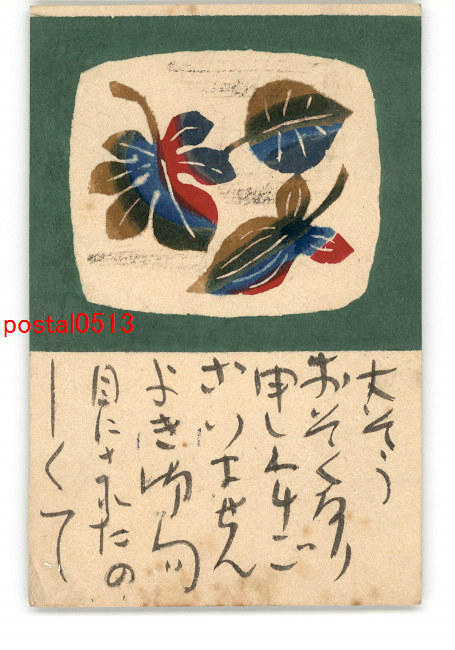 postal0513
大そう
おそくなり
申しわけご
ざいません
よき御句
目にされたの
しくて